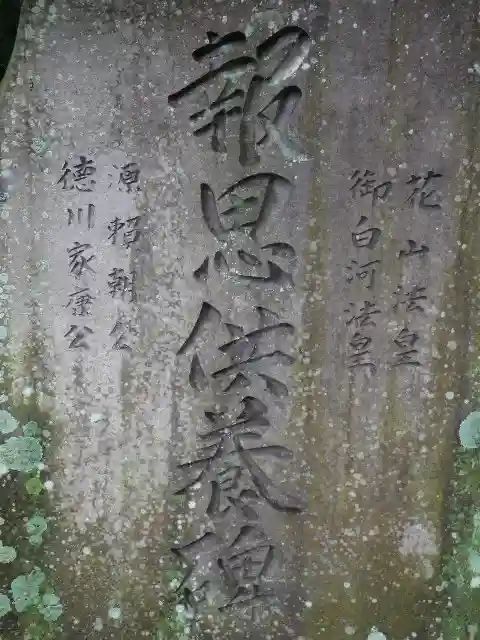 花山法皇
御白河法皇
報恩供養碑
源賴朝公
徳川家康公